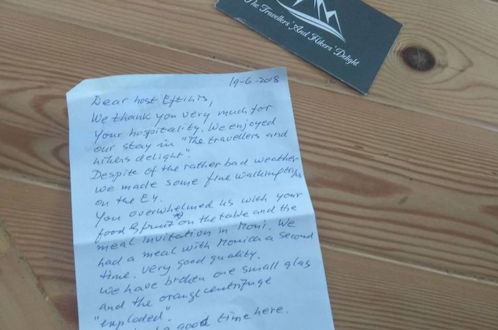 The Travellers' And Hikers' Delight
19-6-2018
Dear host Eftihis,
We thank you very much for
your hospitality. We enjoyed
our stay in "The travellers and
hikers delight".
Despite of the rather bad weather
we made some fine walking
on the E4.
You overwhelmed us with your
food & fruit on the table and the
meal invitation in Moni. We
had a meal with Monica a second
time. Very good quality.
We have broken one small glas
and the orange centrifuge
"exploded".
good time here.